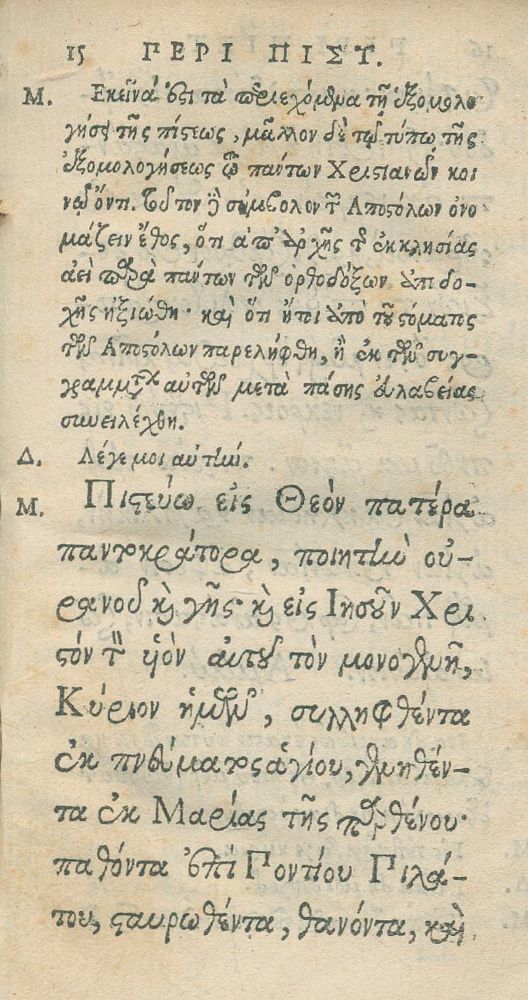 15 ΠΕΡΙ ΠΙΣΤ.
Μ. Ἐκεῖνά ἐςι τὰ περιεχόμενα τῇ ἐξομολο
γήσει τῆς πίςεως, μᾶλλον δὲ τῷ τύπῳ τῆς
ἐξομολογήσεως τῷ πάντων Χριςιανῶν κοι
νῷ ὄντι. ὃν σύμβολον τῶν Ἀποςόλων ὀνο
μάζειν ἔθος, ὅτι ἀπ' ἀρχῆς τῆς ἐκκλησίας
ἀεὶ παρὰ πάντων τῶν ὀρθοδόξων ἀποδο-
χῆς ἠξιώθη· καὶ ὅτι ἤτοι ἀπὸ τοῦ ςόματος
τῶν Ἀποςόλων παρελήφθη, ἢ ἐκ τῶν συγ-
γραμμάτων αὐτῶν μετὰ πάσης εὐλαβείας
συνειλέχθη.
Δ. Λέγε μοι αὐτήν.
Μ. Πιςεύω εἰς Θεὸν πατέρα
παντοκράτορα, ποιητὴν οὐ-
ρανοῦ καὶ γῆς· καὶ εἰς Ἰησοῦν Χρι
ςόν τὸν υἱὸν αὐτοῦ τὸν μονογενῆ,
Κύριον ἡμῶν, συλληφθέντα
ἐκ πνεύματος ἁγίου, γεννηθέν-
τα ἐκ Μαρίας τῆς παρθένου·
παθόντα ἐπὶ Ποντίου Πιλά-
του, ςαυρωθέντα, θανόντα, καὶ